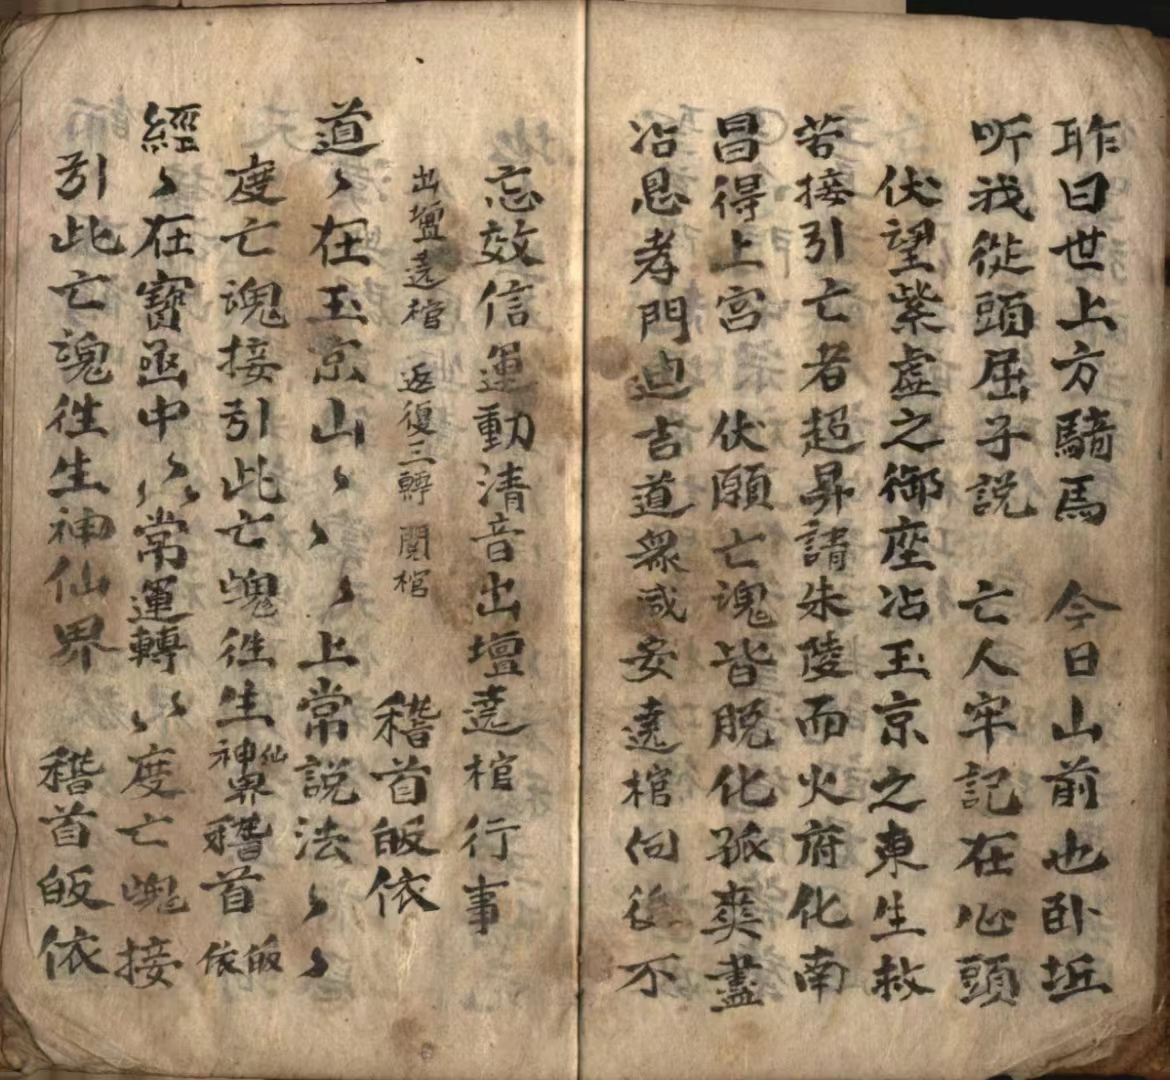 昨日世上方騎馬 今日山前也卧坵
听我從頭屈子說 亡人牢記在心頭
伏望紫虛之御座沾玉京之東生救
苦接引亡者超昇請朱陵而火府化南
昌得上宮 伏願亡魂皆脱化孤爽盡
沾恩孝門迪吉道衆咸安遶棺向後不
忘效信運動清音出壇遶棺行事
出壇遶棺 返復三轉 開棺
稽首皈依
道々在玉京山々々々上常説法々々
度亡魂接引此亡魂徃生神仙界稽首皈依
經々在寶凾中々々々常運轉々々度亡魂接
引此亡魂徃生神仙界 稽首皈依